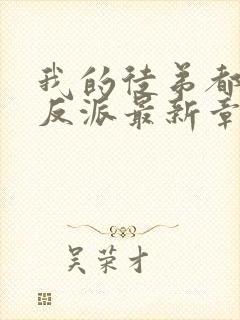 我的徒弟都
反派最新章
吴荣才